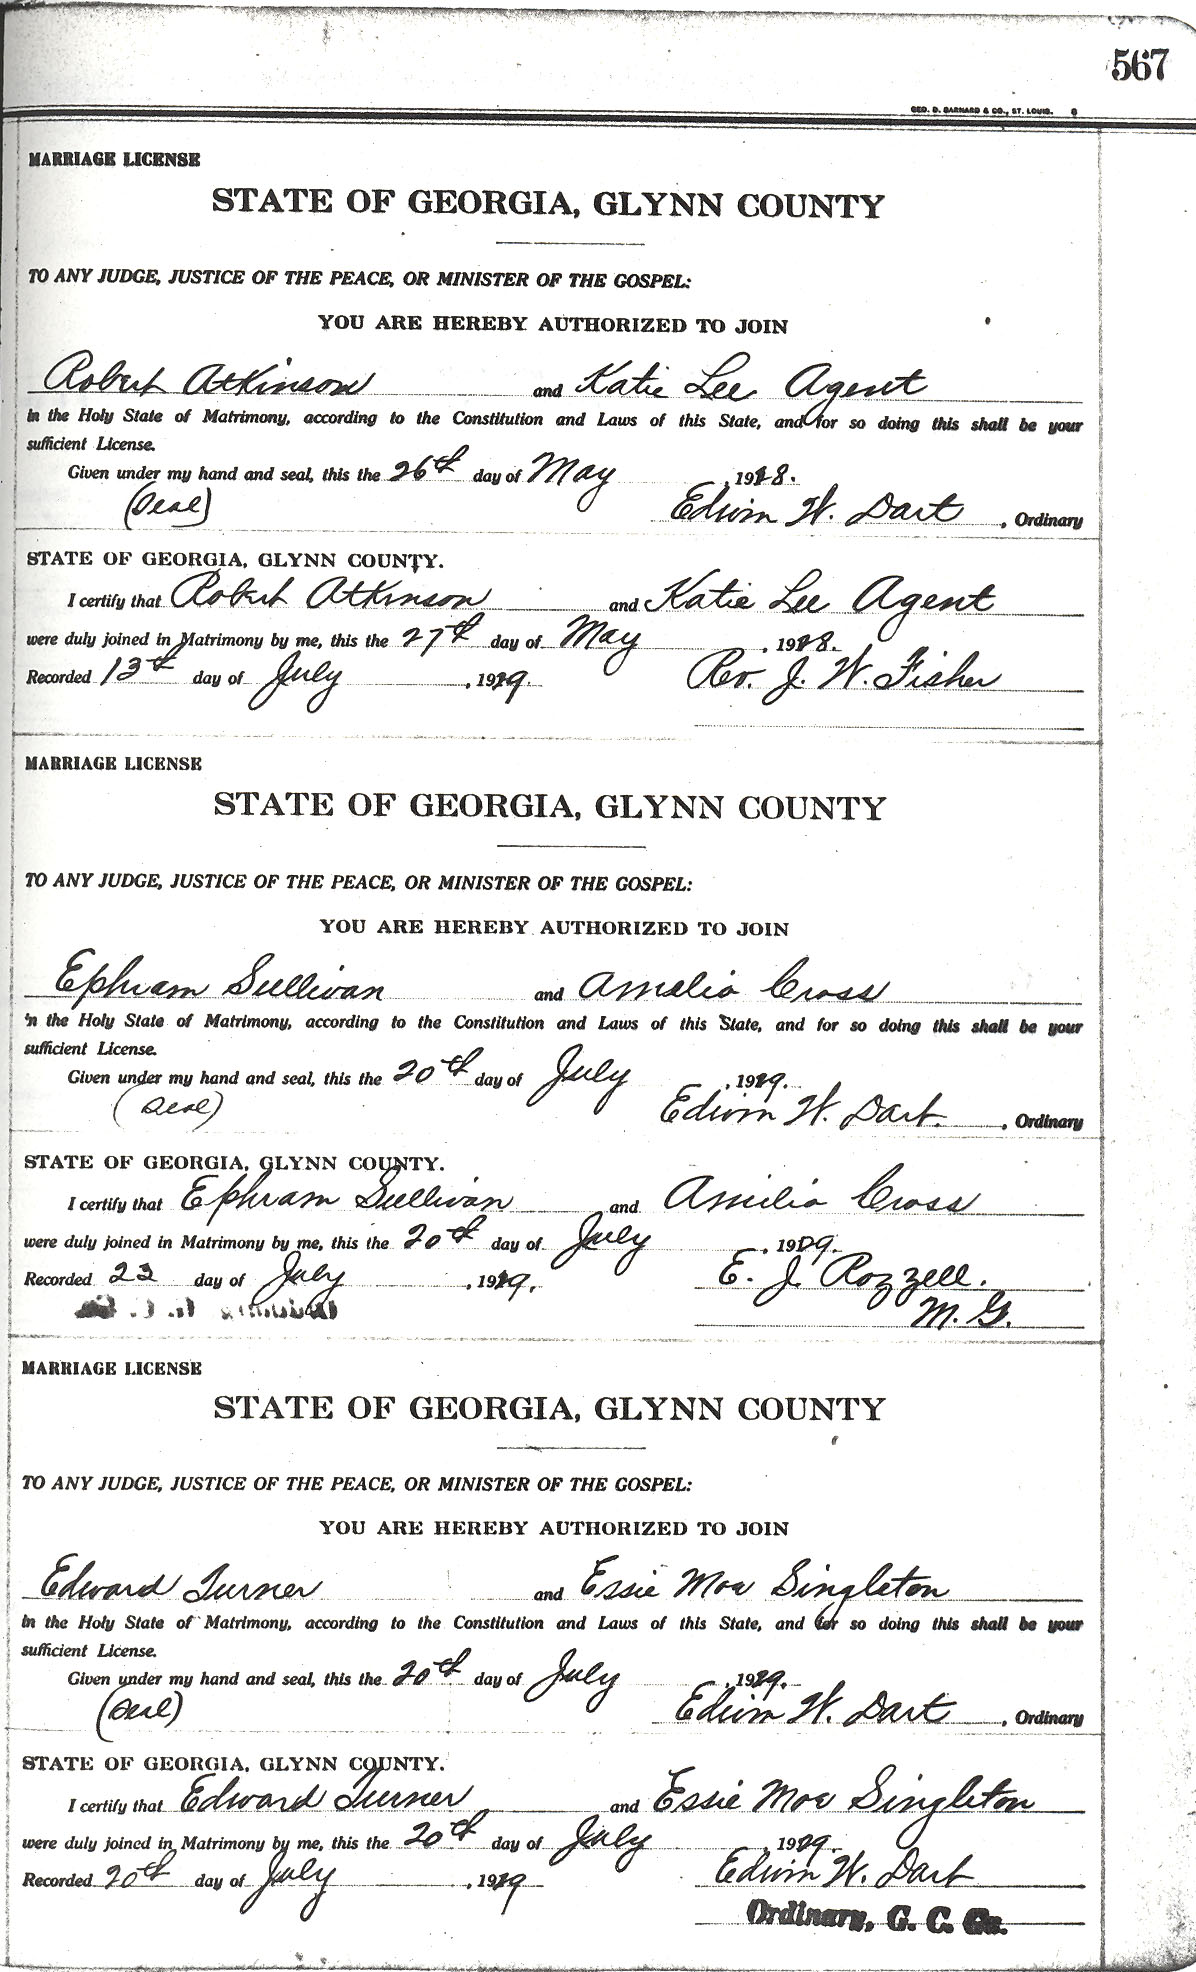 567
GEO. D. BARNARD & CO., ST. LOUIS.
MARRIAGE LICENSE
STATE OF GEORGIA, GLYNN COUNTY
TO ANY JUDGE, JUSTICE OF THE PEACE, OR MINISTER OF THE GOSPEL:
YOU ARE HEREBY AUTHORIZED TO JOIN
Robert Atkinson and Katie Lee Agent
in the Holy State of Matrimony, according to the Constitution and Laws of this State, and for so doing this shall be your
sufficient License.
Given under my hand and seal, this the 26th day of May, 1928.
(Seal) Edwin W. Dart, Ordinary
STATE OF GEORGIA, GLYNN COUNTY.
I certify that Robert Atkinson and Katie Lee Agent
were duly joined in Matrimony by me, this the 27th day of May, 1928.
Recorded 13th day of July, 1929. Rev. J. W. Fisher
MARRIAGE LICENSE
STATE OF GEORGIA, GLYNN COUNTY
TO ANY JUDGE, JUSTICE OF THE PEACE, OR MINISTER OF THE GOSPEL:
YOU ARE HEREBY AUTHORIZED TO JOIN
Ephram Sullivan and Amelia Cross
in the Holy State of Matrimony, according to the Constitution and Laws of this State, and for so doing this shall be your
sufficient License.
Given under my hand and seal, this the 20th day of July, 1929.
(Seal) Edwin W. Dart, Ordinary
STATE OF GEORGIA, GLYNN COUNTY.
I certify that Ephram Sullivan and Amelia Cross
were duly joined in Matrimony by me, this the 20th day of July, 1929.
Recorded 23 day of July, 1929. E. J. Rozzell.
M. G.
MARRIAGE LICENSE
STATE OF GEORGIA, GLYNN COUNTY
TO ANY JUDGE, JUSTICE OF THE PEACE, OR MINISTER OF THE GOSPEL:
YOU ARE HEREBY AUTHORIZED TO JOIN
Edward Turner and Essie Mae Singleton
in the Holy State of Matrimony, according to the Constitution and Laws of this State, and for so doing this shall be your
sufficient License.
Given under my hand and seal, this the 20th day of July, 1929.
(Seal) Edwin W. Dart, Ordinary
STATE OF GEORGIA, GLYNN COUNTY.
I certify that Edward Turner and Essie Mae Singleton
were duly joined in Matrimony by me, this the 20th day of July, 1929.
Recorded 20th day of July, 1929 Edwin W. Dart
Ordinary, G. C. Ga.